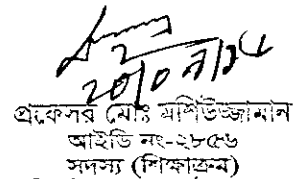 ২০/০৭/১৫
প্রফেসর মোঃ মশিউজ্জামান
আইডি নং-২৮৫৬
সদস্য (শিক্ষাক্রম)